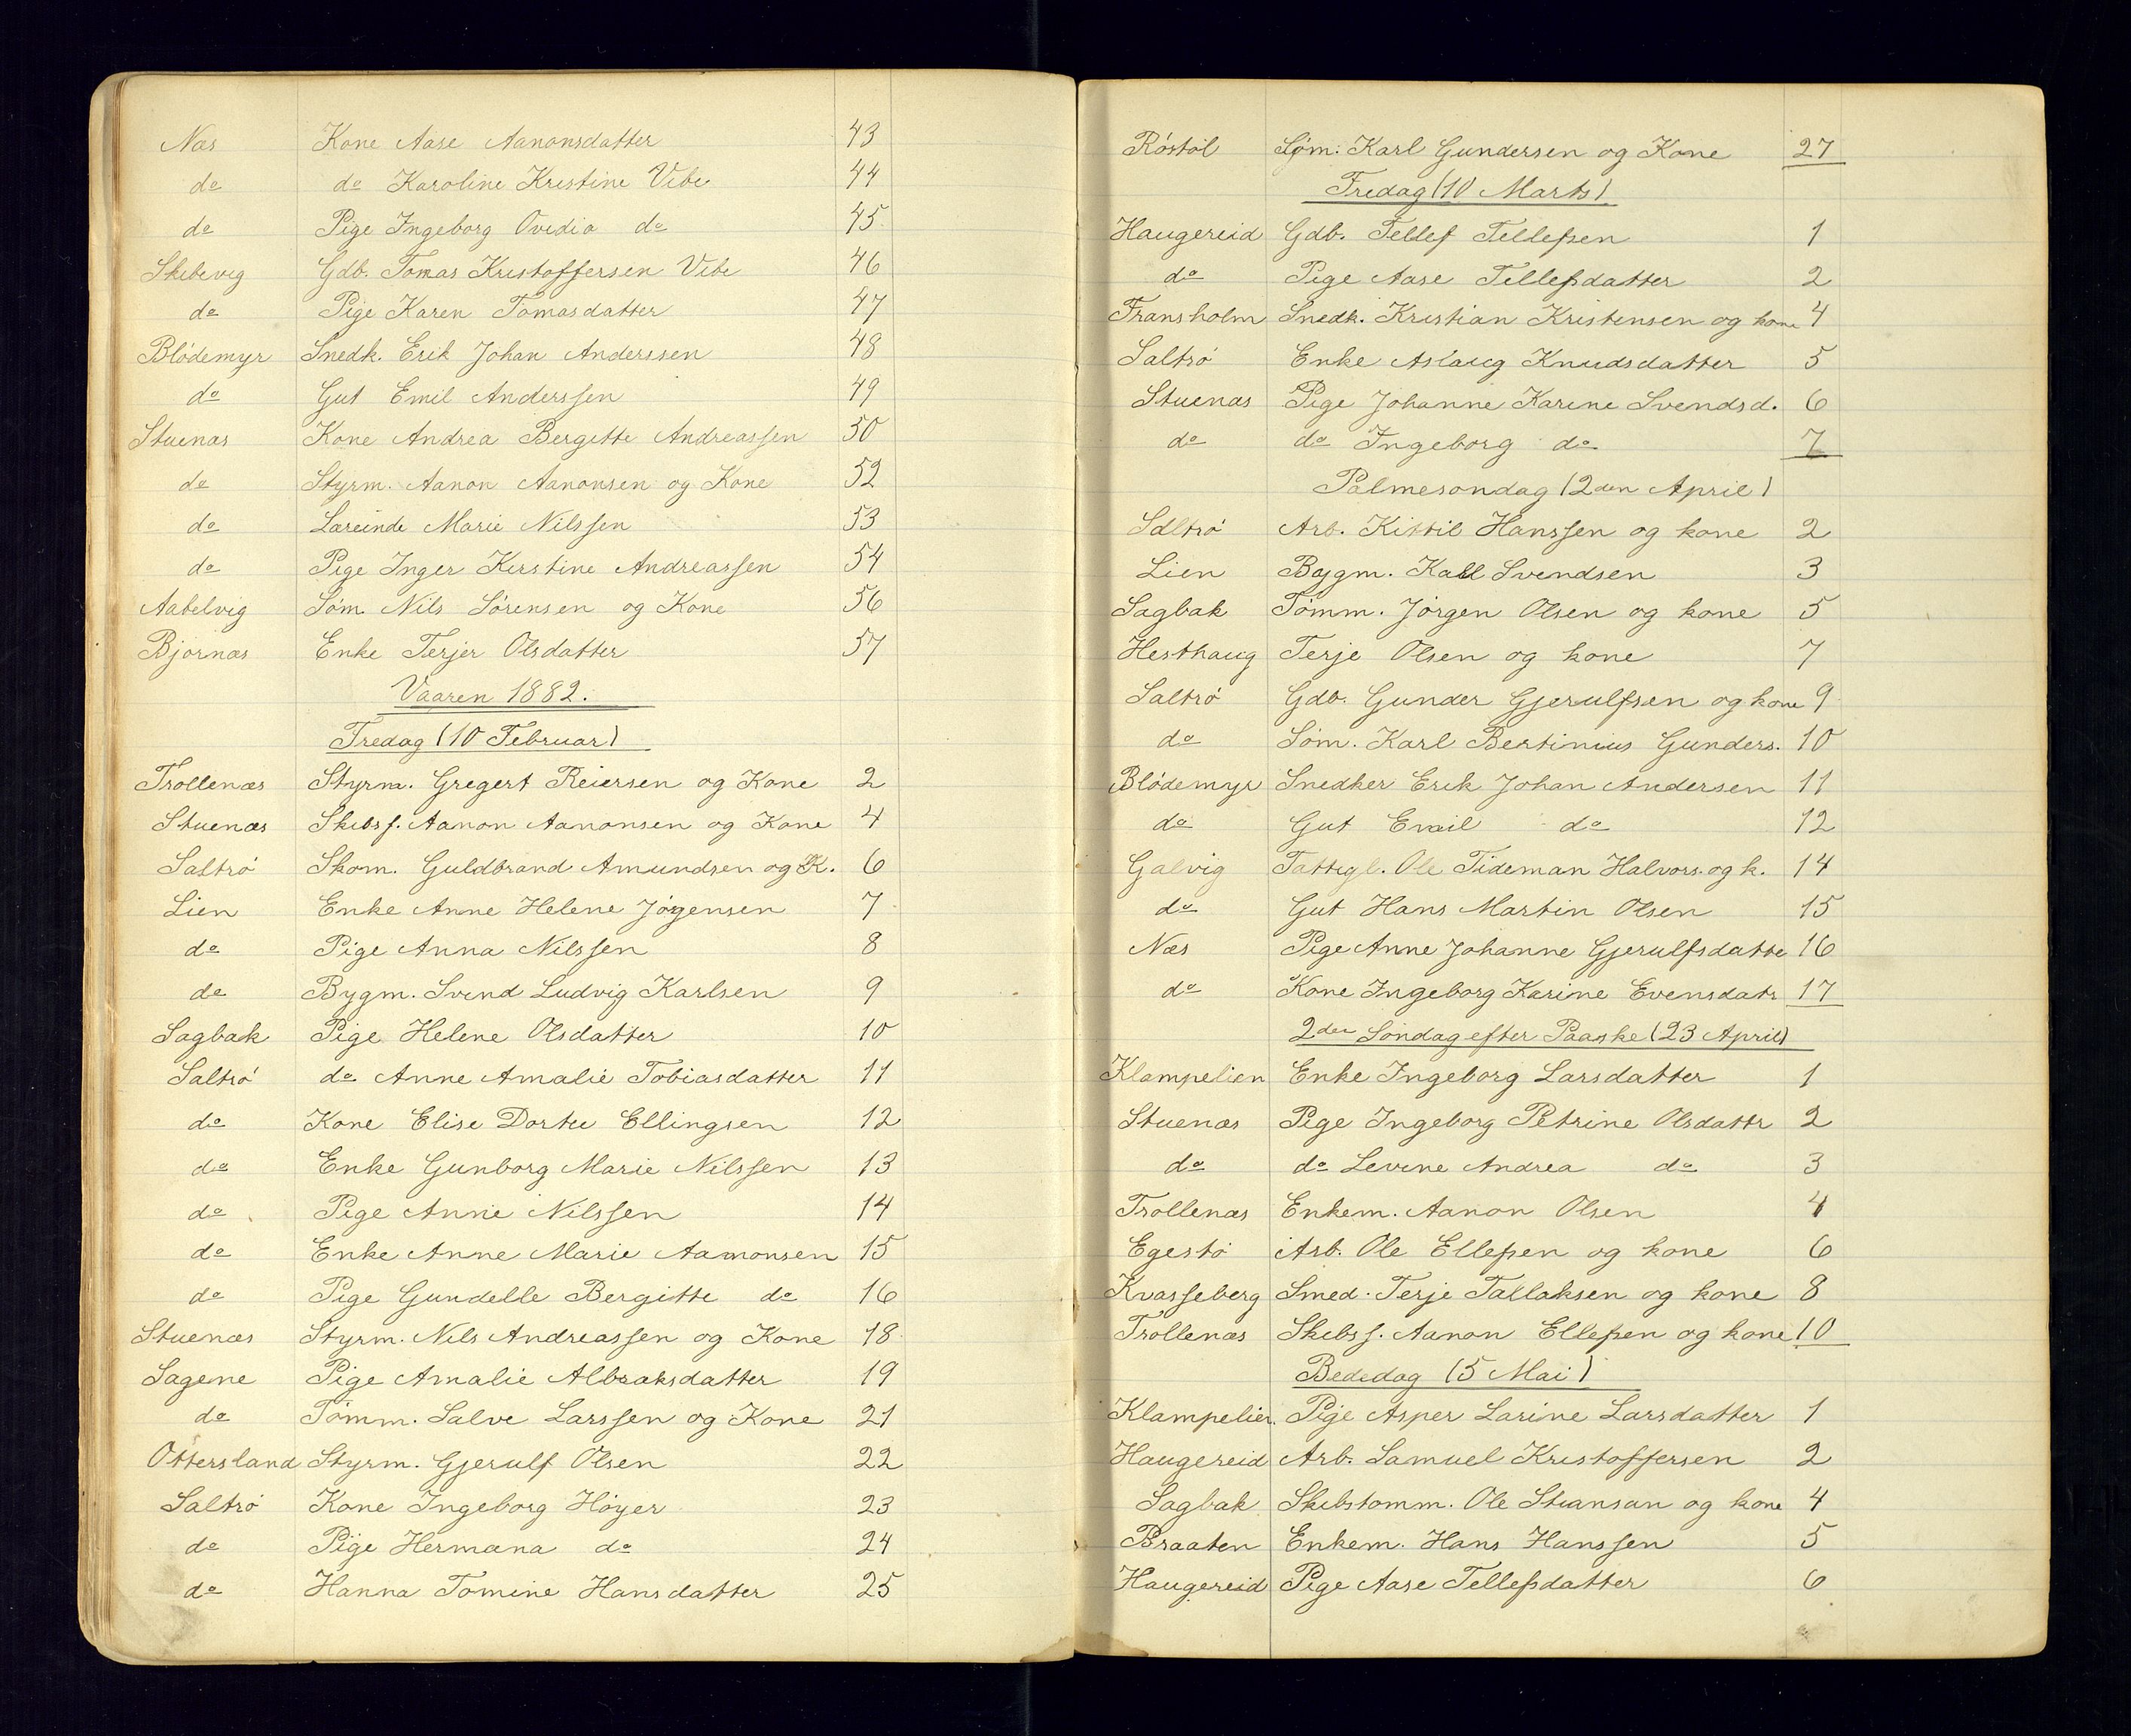 Næs Kone Aase Aanonsdatter 43
do do Karoline Kristine Vibe 44
do Pige Ingeborg Ovedia do 45
Skibevig Gdb. Tomas Kristoffersen Vibe 46
do Pige Karen Tomasdatter 47
Blødemyr Snedk. Erik Johan Anderssen 48
do Gut Emil Anderssen 49
Stuenæs Kone Andrea Bergitte Andreassen 50
do Styrm. Aanon Aanonsen og Kone 52
do Lærinde Marie Nilssen 53
do Pige Inger Kirstine Andreassen 54
Aabelvig Søm. Nils Sørensen og Kone 56
Bjørnæs Enke Terjer Olsdatter 57
Vaaren 1882.
Fredag (10 Februar)
Trollenæs Styrm. Gregert Reiersen og Kone 2
Stuenæs Skibsf. Aanon Aanonsen og Kone 4
Saltrø Skom. Guldbrand Amundsen og K. 6
Lien Enke Anne Helene Jørgensen 7
do Pige Anna Nilssen 8
do Bygm. Svend Ludvig Karlsen 9
Sagbak Pige Helene Olsdatter 10
Saltrø do Anne Amalie Tobiasdatter 11
do Kone Elise Dortee Ellingsen 12
do Enke Gunborg Marie Nilssen 13
do Pige Anne Nilssen 14
do Enke Anne Marie Aamonsen 15
do Pige Gundelle Bergitte do 16
Stuenæs Styrm. Nils Andreassen og Kone 18
Sagene Pige Amalie Albraksdatter 19
do Tømm. Salve Larssen og Kone 21
Ottersland Styrm. Gjerulf Olsen 22
Saltrø Kone Ingeborg Høyer 23
do Pige Hermana do 24
do Hanna Tomine Hansdatter 25
Røstøl Søm. Karl Gundersen og Kone 27
Fredag (10 Marts)
Haugereid Gdb. Tellef Tellefsen 1
do Pige Aase Tellefsdatter 2
Fransholm Snedk. Kristian Kristensen og kone 4
Saltrø Enke Aslaug Knudsdatter 5
Stuenæs Pige Johanne Karine Svendsd. 6
do do Ingeborg do 7
Palmesondag (2den April)
Saltrø Arb. Kittil Hanssen og kone 2
Lien Bygm. Kall Svendsen 3
Sagbak Tømm. Jørgen Olsen og kone 5
Hesthaug Terje Olsen og kone 7
Saltrø Gdb. Gunder Gjerulfsen og kone 9
do Søm. Karl Bertinius Gunders. 10
Blødemyr Snedker Erik Johan Andersen 11
do Gut Emil do 12
Galvig Fattigl. Ole Tideman Halvors. og k. 14
do Gut Hans Martin Olsen 15
Næs Pige Anne Johanne Gjerulfsdatte 16
do Kone Ingeborg Karine Evensdatr 17
2den Søndag efter Paaske (23 April)
Klampelien Enke Ingeborg Larsdatter 1
Stuenæs Pige Ingeborg Petrine Olsdattr 2
do do Levine Andrea do 3
Trollenæs Enkem. Aanon Olsen 4
Egestø Arb. Ole Ellefsen og kone 6
Kvasseberg Smed. Terje Tallaksen og kone 8
Trollenæs Skibsf. Aanon Ellefsen og kone 10
Bededag (5 Mai)
Klampelien Pige Asper Larine Larsdatter 1
Haugereid Arb. Samuel Kristoffersen 2
Sagbak Skibstomm. Ole Stiansan og kone 4
Braaten Enkem. Hans Hanssen 5
Haugereid Pige Aase Tellefsdatter 6